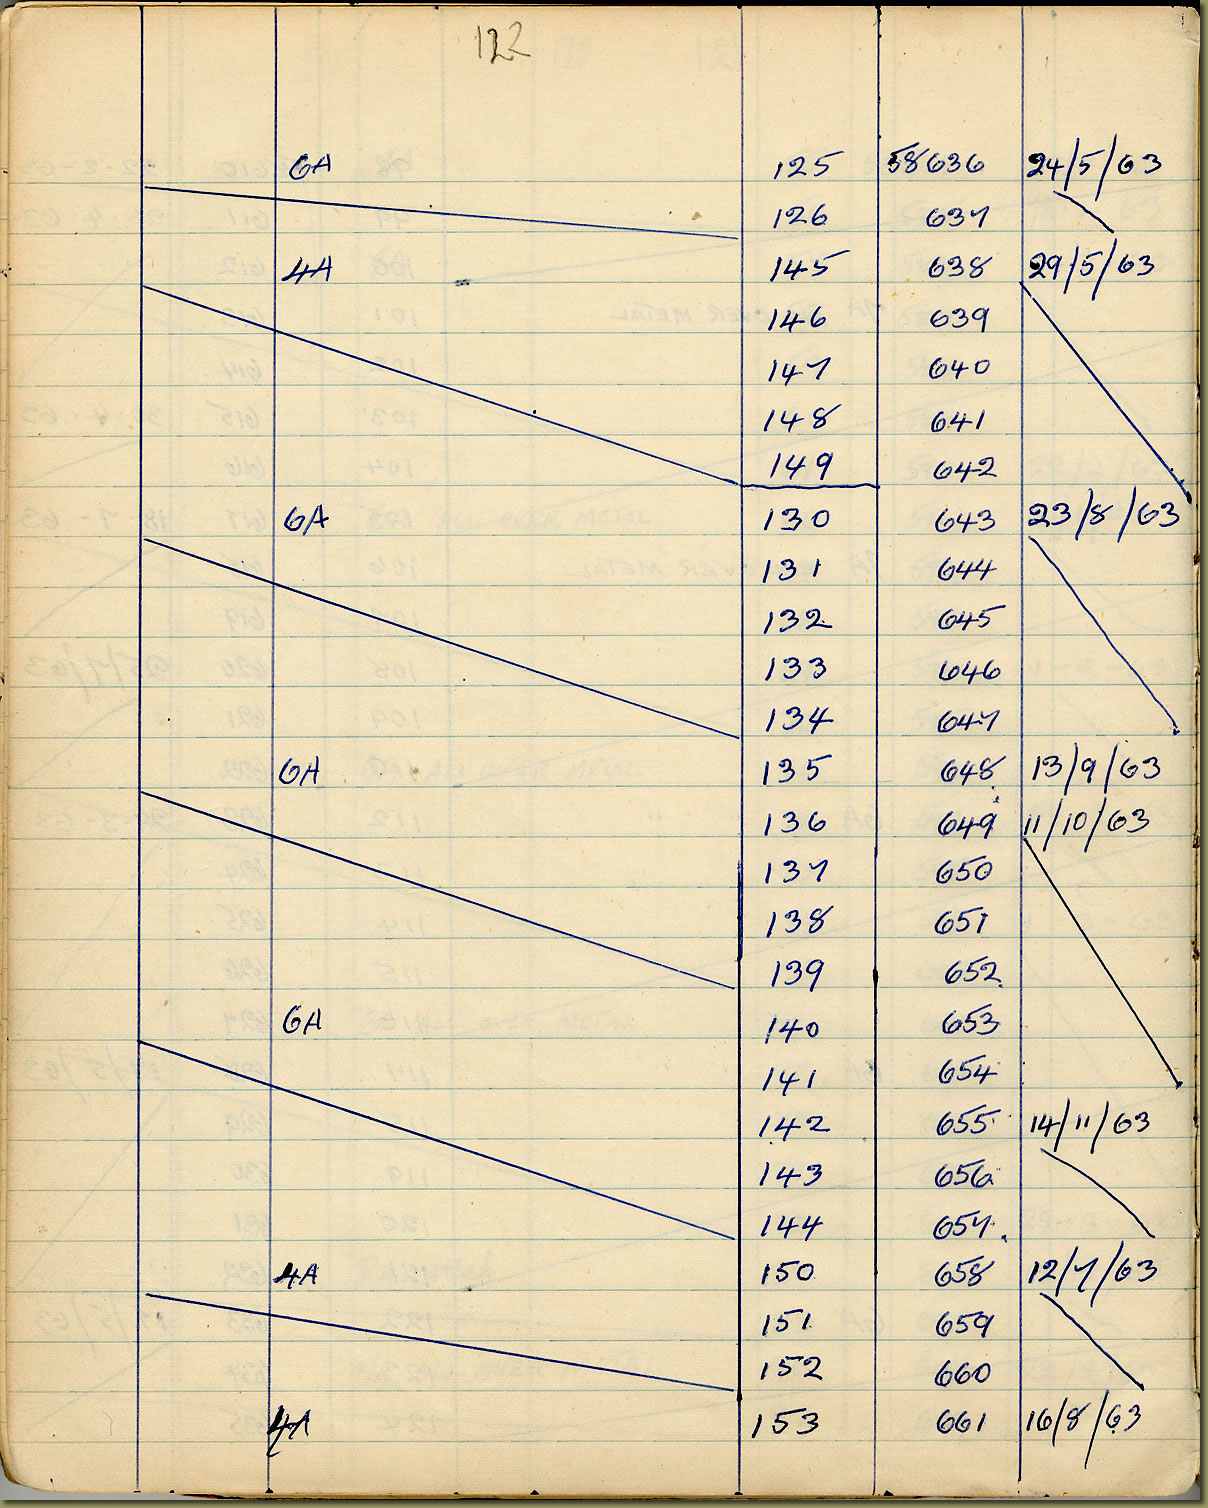 122
6A 125 58636 24/5/63
126 637
4A 145 638 29/5/63
146 639
147 640
148 641
149 642
6A 130 643 23/8/63
131 644
132 645
133 646
134 647
6A 135 648 13/9/63
136 649 11/10/63
137 650
138 651
139 652
6A 140 653
141 654
142 655 14/11/63
143 656
144 657
4A 150 658 12/7/63
151 659
152 660
4A 153 661 16/8/63